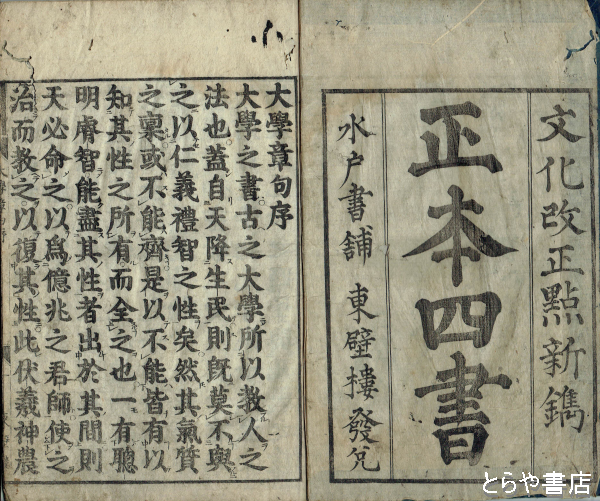 文化改正點新鐫
正本四書
水戶書舖 東壁樓發兌
大學章句序
大學之書古之大學所以教人之
法也蓋自天降生民則既莫不與
之以仁義禮智之性矣然其氣質
之稟或不能齊是以不能皆有以
知其性之所有而全之也一有聰
明睿智能盡其性者出於其間則
天必命之以爲億兆之君師使之
治而教之以復其性此伏羲神農
とらや書店